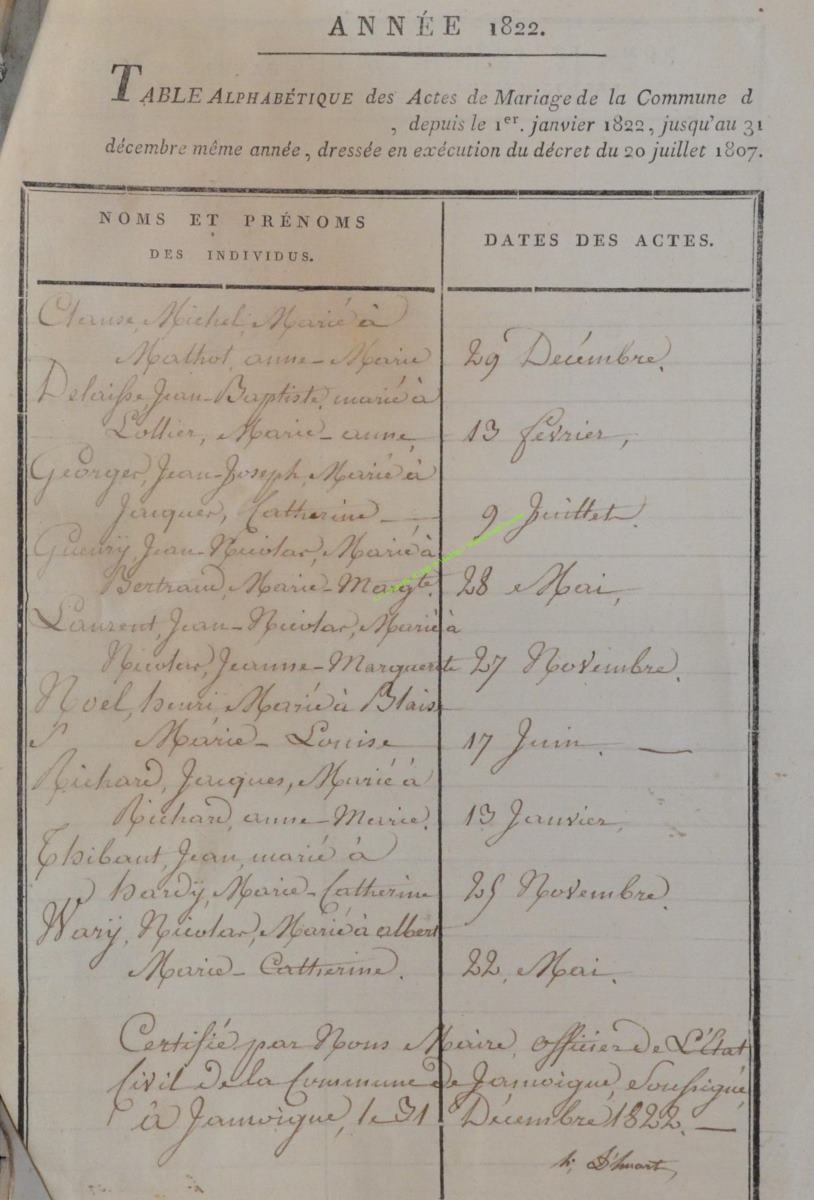 ANNÉE 1822.
TABLE ALPHABÉTIQUE des Actes de Mariage de la Commune d
, depuis le 1er. janvier 1822, jusqu'au 31
décembre même année, dressée en exécution du décret du 20 juillet 1807.
NOMS ET PRÉNOMS
DES INDIVIDUS.
DATES DES ACTES.
Clause, Michel, Marié à
Mathot, anne-Marie 29 Decémbre.
Delaisse, Jean-Baptiste, marié à
Lollier, Marie-anne, 13 février,
Georges, Jean-Joseph, Marié à
Jacques, Catherine — 9 Juillet.
Guenrÿ, Jean-Nicolas, Marié à
Bertrand, Marie-Margte. 28 Mai,
Laurent, Jean-Nicolas, Marié à
Nicolas, Jeanne-Marguerite 27 Novembre.
Noel, henri Marié à Blaise
Marie-Louise 17 Juin. —
Richard, Jacques, Marié à
Richard, anne-Marie. 13 Janvier,
Thibaut, Jean, marié à
hardÿ, Marie-Catherine 25 Novembre.
Warÿ, Nicolas, Marié à albert
Marie-Catherine. 22, Mai.
Certifié par Nous Maire, officier de L'Etat
Civil de la Commune de Jamoigne, Soussigné,
à Jamoigne, le 31 Décembre 1822. —